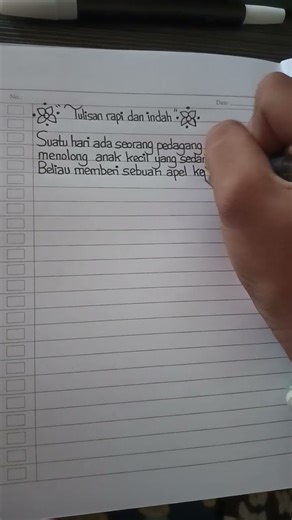 No.
Date
"Tulisan rapi dan indah"
Suatu hari ada seorang pedagang
menolong anak kecil yang sedan
Beliau memberi sebuah apel ke